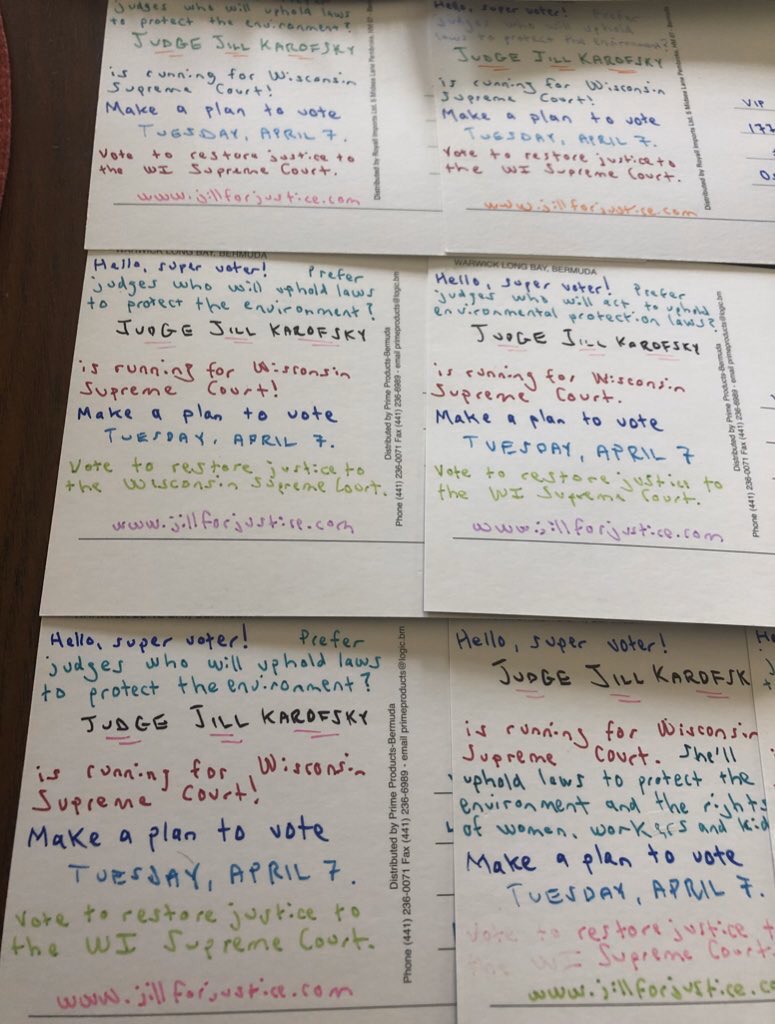 judges who will uphold laws
to protect the environment?
JUDGE JILL KAROFSKY
is running for Wisconsin
Supreme Court!
Make a plan to vote
TUESDAY, APRIL 7.
Vote to restore justice to
the WI Supreme Court.
www.jillforjustice.com
Distributed by Royall Imports Ltd. 5 Midsea Lane Pembroke, HM 07 - Bermuda
Hello, super voter! Prefer
judges who will uphold
laws to protect the environment?
JUDGE JILL KAROFSKY
is running for Wisconsin
Supreme Court!
Make a plan to vote
TUESDAY, APRIL 7.
Vote to restore justice to
the WI Supreme Court.
www.jillforjustice.com
Distributed by Royall Imports Ltd. 5 Midsea Lane Pembroke, HM 07 - Bermuda
VIP
177
WARWICK LONG BAY, BERMUDA
Hello, super voter! Prefer
judges who will uphold laws
to protect the environment?
JUDGE JILL KAROFSKY
is running for Wisconsin
Supreme Court!
Make a plan to vote
TUESDAY, APRIL 7.
Vote to restore justice to
the Wisconsin Supreme Court.
www.jillforjustice.com
Distributed by Prime Products-Bermuda
Phone (441) 236-0071 Fax (441) 236-6989 - email primeproducts@logic.bm
WARWICK LONG BAY, BERMUDA
Hello, super voter! Prefer
judges who will act to uphold
environmental protection laws?
JUDGE JILL KAROFSKY
is running for Wisconsin
Supreme Court.
Make a plan to vote
TUESDAY, APRIL 7
Vote to restore justice to
the WI Supreme Court.
www.jillforjustice.com
Distributed by Prime Products-Bermuda
Phone (441) 236-0071 Fax (441) 236-6989 - email primeproducts@logic.bm
Hello, super voter! Prefer
judges who will uphold laws
to protect the environment?
JUDGE JILL KAROFSKY
is running for Wisconsin
Supreme Court!
Make a plan to vote
TUESDAY, APRIL 7.
Vote to restore justice to
the WI Supreme Court.
www.jillforjustice.com
Distributed by Prime Products-Bermuda
Phone (441) 236-0071 Fax (441) 236-6989 - email primeproducts@logic.bm
Hello, super voter!
JUDGE JILL KAROFSK
is running for Wisconsin
Supreme Court. She'll
uphold laws to protect the
environment and the rights
of women, workers and kid
Make a plan to vote
TUESDAY, APRIL 7.
Vote to restore justice t
the WI Supreme Court.
www.jillforjustice.co